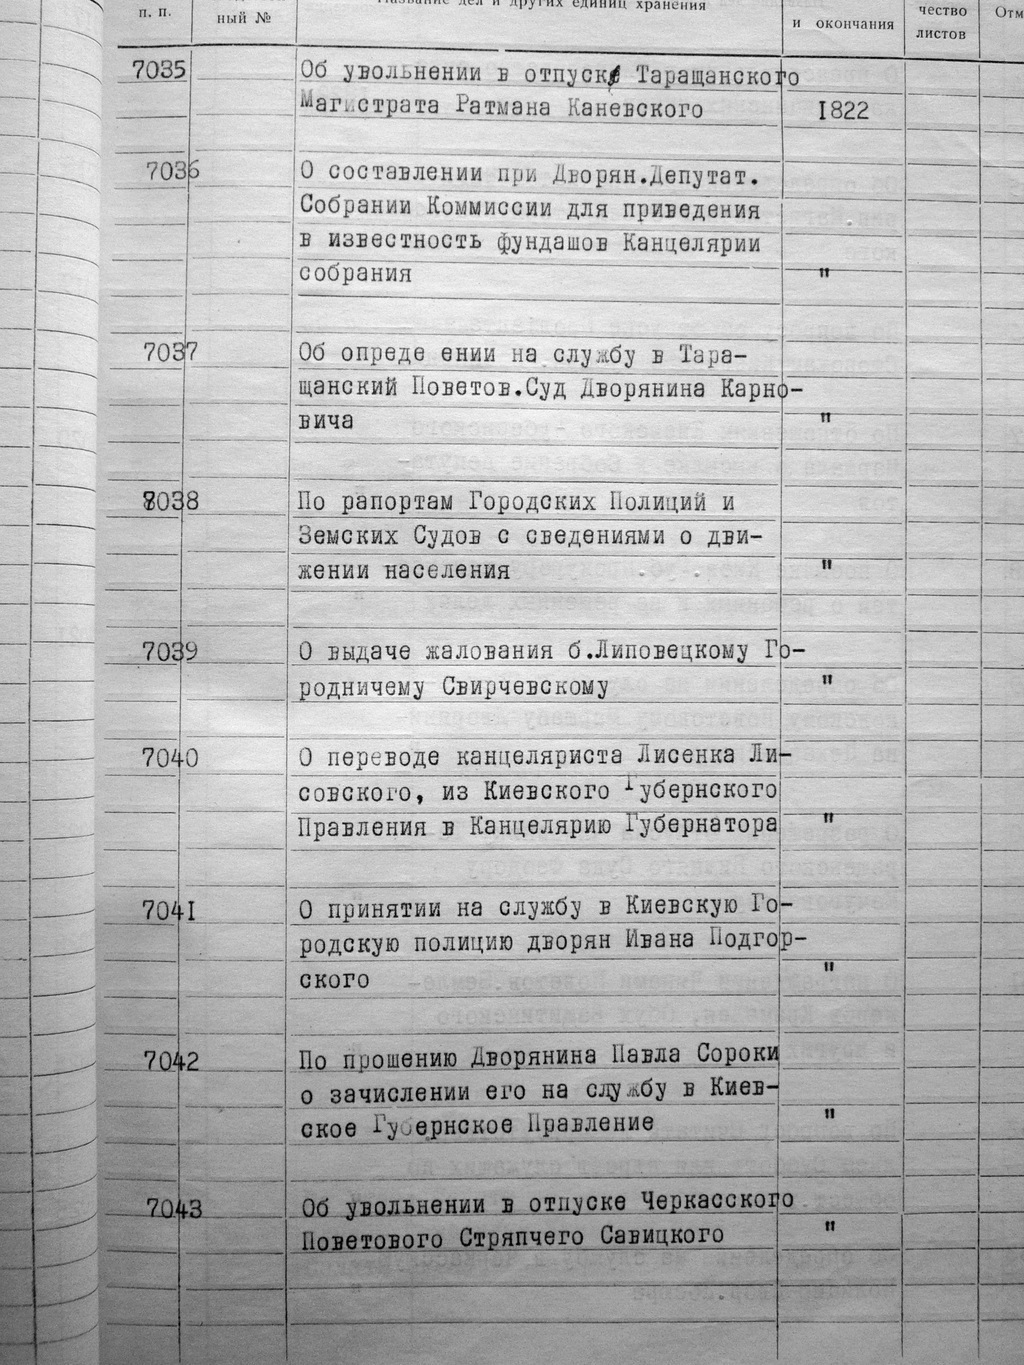 п. п.
ный №
Название дел и других единиц хранения
и окончания
чество
листов
Отм
7035
Об увольнении в отпуск Таращанского
Магистрата Ратмана Каневского
1822
7036
О составлении при Дворян.Депутат.
Собрании Коммиссии для приведения
в известность фундашов Канцелярии
собрания
"
7037
Об опреде ении на службу в Тара-
щанский Поветов.Суд Дворянина Карно-
вича
"
7038
По рапортам Городских Полиций и
Земских Судов с сведениями о дви-
жении населения
"
7039
О выдаче жалования б.Липовецкому Го-
родничему Свирчевскому
"
7040
О переводе канцеляриста Лисенка Ли-
совского, из Киевского Губернского
Правления в Канцелярию Губернатора
"
7041
О принятии на службу в Киевскую Го-
родскую полицию дворян Ивана Подгор-
ского
"
7042
По прошению Дворянина Павла Сороки
о зачислении его на службу в Киев-
ское Губернское Правление
"
7043
Об увольнении в отпуске Черкасского
Поветового Стряпчего Савицкого
"